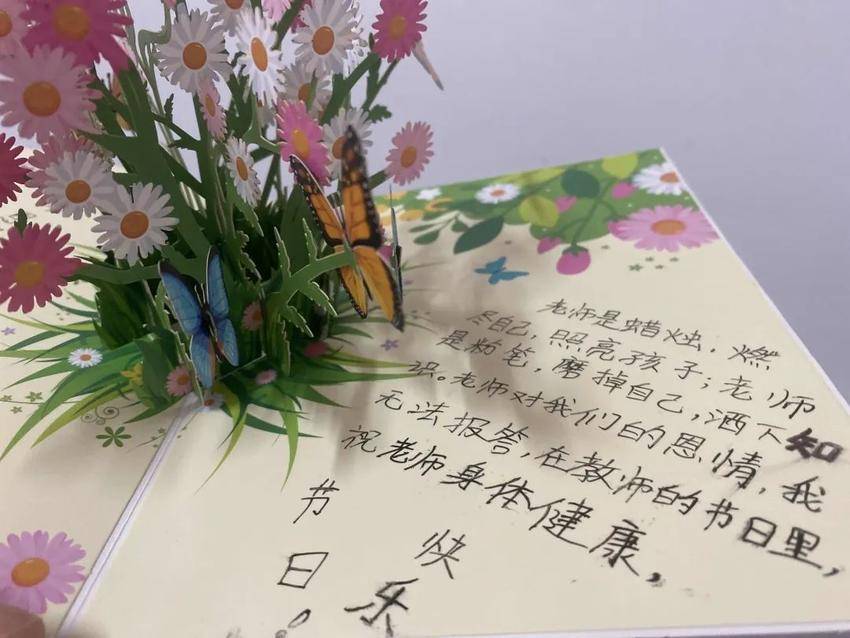 老师是蜡烛，燃
尽自己，照亮孩子；老师
是粉笔，磨掉自己，洒下知
识。老师对我们的恩情，我
无法报答，在教师的节日里，
祝老师身体健康，
节日快乐！